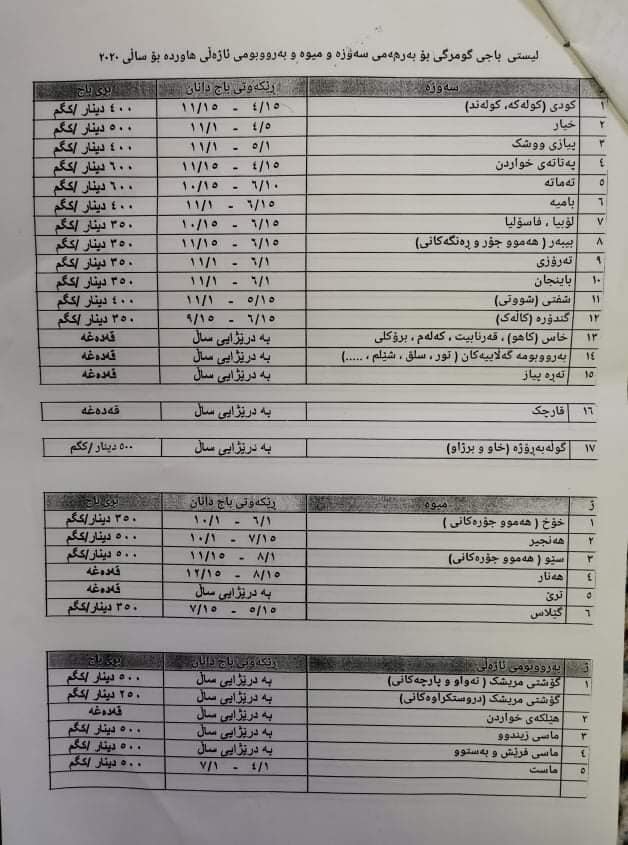 لیستی باجی گومرگی بۆ بەرهەمی سەوزە و میوە و بەرووبومی ئاژەڵی هاوردە بۆ ساڵی ٢٠٢٠
ژ سەوزە ڕێکەوتی باج دانان بڕی باج
١ کودی (کولەکە، کولەند) ٤/١٥ - ١١/١٥ ٤٠٠ دینار /کگم
٢ خیار ٤/٥ - ١١/١ ٥٠٠ دینار /کگم
٣ پیازی ووشک ٥/١ - ١١/١ ٤٠٠ دینار /کگم
٤ پەتاتەی خواردن ٤/١٥ - ١١/١٥ ٦٠٠ دینار /کگم
٥ تەماتە ٦/١٠ - ١٠/١٥ ٦٠٠ دینار /کگم
٦ بامیە ٦/١٥ - ١١/١ ٤٠٠ دینار /کگم
٧ لۆبیا ، فاسۆلیا ٦/١٥ - ١٠/١٥ ٣٥٠ دینار /کگم
٨ بیبەر ( هەموو جۆر و ڕەنگەکانی) ٦/١٥ - ١١/١٥ ٣٥٠ دینار /کگم
٩ تەرۆزی ٦/١ - ١١/١ ٣٥٠ دینار /کگم
١٠ باینجان ٦/١ - ١١/١ ٣٥٠ دینار /کگم
١١ شفتی (شووتی) ٥/١٥ - ١١/١ ٤٠٠ دینار /کگم
١٢ گندۆرە (کاڵەک) ٦/١٥ - ٩/١٥ ٣٥٠ دینار /کگم
١٣ خاس (کاهو) ، قەرنابیت ، کەلەم ، برۆکلی بە درێژایی ساڵ قەدەغە
١٤ بەرووبومە گەڵاییەکان ( تور ، سلق ، شێلم ، .....) بە درێژایی ساڵ قەدەغە
١٥ تەڕە پیاز بە درێژایی ساڵ قەدەغە
١٦ قارچک بە درێژایی ساڵ قەدەغە
١٧ گوڵەبەڕۆژە (خاو و برژاو) بە درێژایی ساڵ ٥٠٠ دینار /کگم
ژ میوە ڕێکەوتی باج دانان بڕی باج
١ خۆخ ( هەموو جۆرەکانی ) ٦/١ - ١٠/١ ٣٥٠ دینار/کگم
٢ هەنجیر ٧/١٥ - ١٠/١ ٥٠٠ دینار/کگم
٣ سێو ( هەموو جۆرەکانی) ٨/١ - ١١/١٥ ٥٠٠ دینار/کگم
٤ هەنار ٨/١٥ - ١٢/١٥ قەدەغە
٥ ترێ بە درێژایی ساڵ قەدەغە
٦ گێلاس ٥/١٥ - ٧/١٥ ٣٥٠ دینار/کگم
ژ بەرووبومی ئاژەڵی ڕێکەوتی باج دانان بڕی باج
١ گۆشتی مریشک ( تەواو و پارچەکانی) بە درێژایی ساڵ ٥٠٠ دینار/کگم
گۆشتی مریشک (دروستکراوەکانی) بە درێژایی ساڵ ٢٥٠ دینار/کگم
٢ هێلکەی خواردن بە درێژایی ساڵ قەدەغە
٣ ماسی زیندوو بە درێژایی ساڵ ٥٠٠ دینار/کگم
٤ ماسی فرێش و بەستوو بە درێژایی ساڵ ٥٠٠ دینار/کگم
٥ ماست ٤/١ - ٧/١ ٥٠٠ دینار/کگم